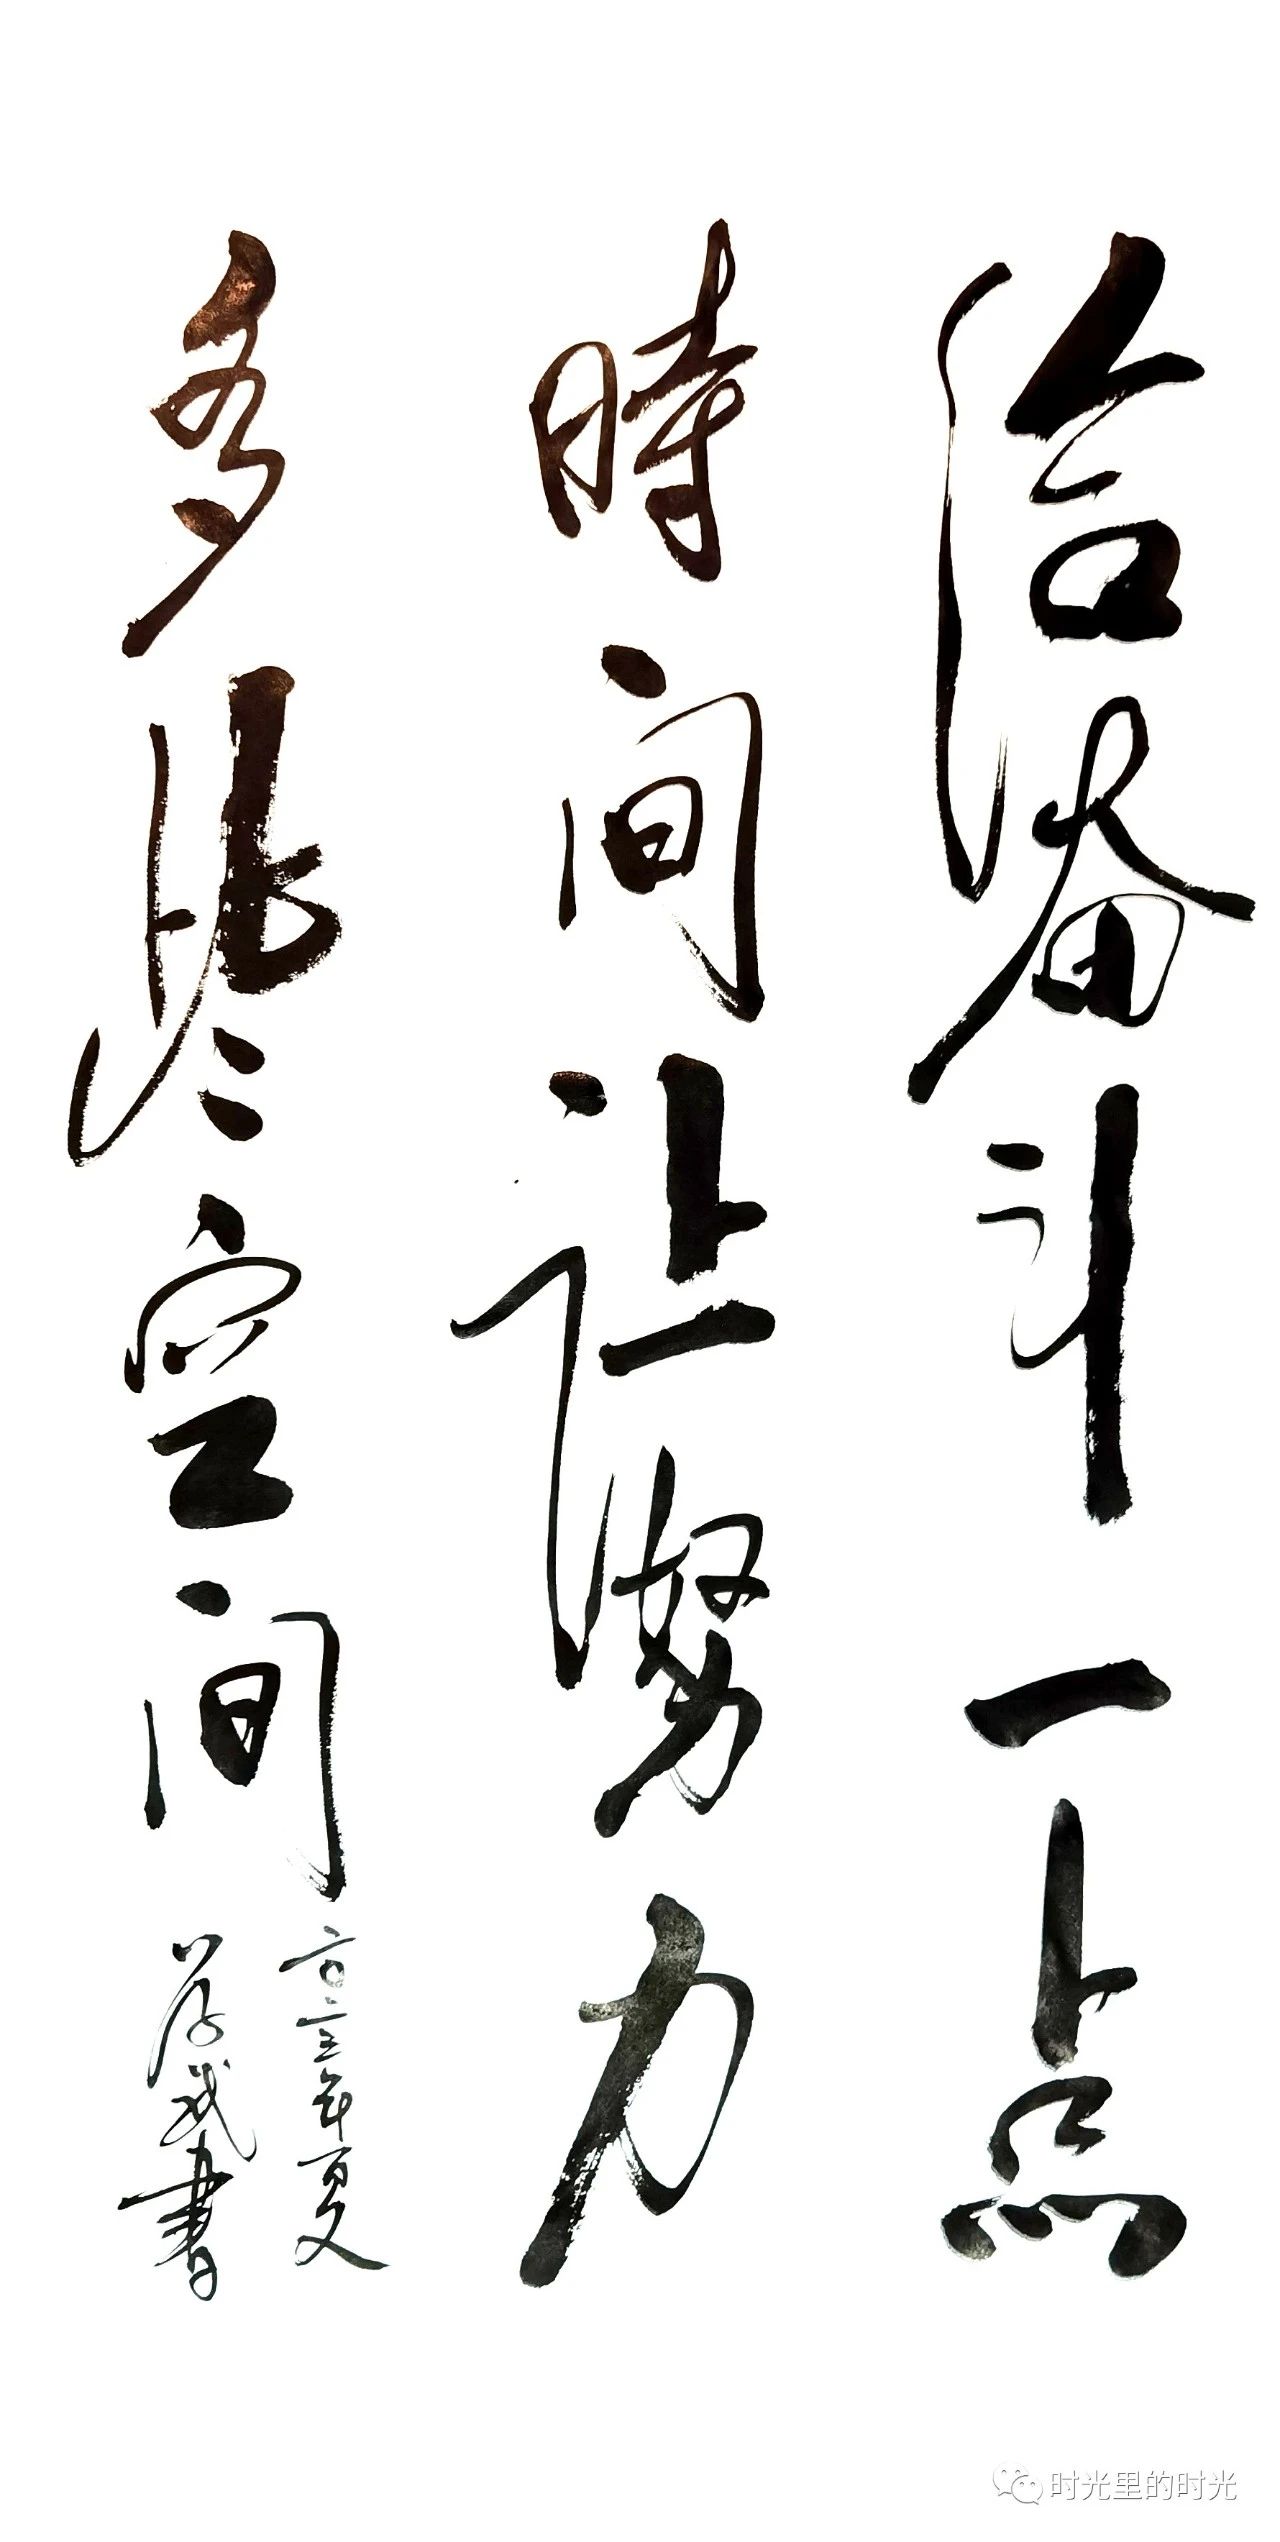 给奋斗一点
時间让努力
多些空间
二〇二三年夏
书
时光里的时光